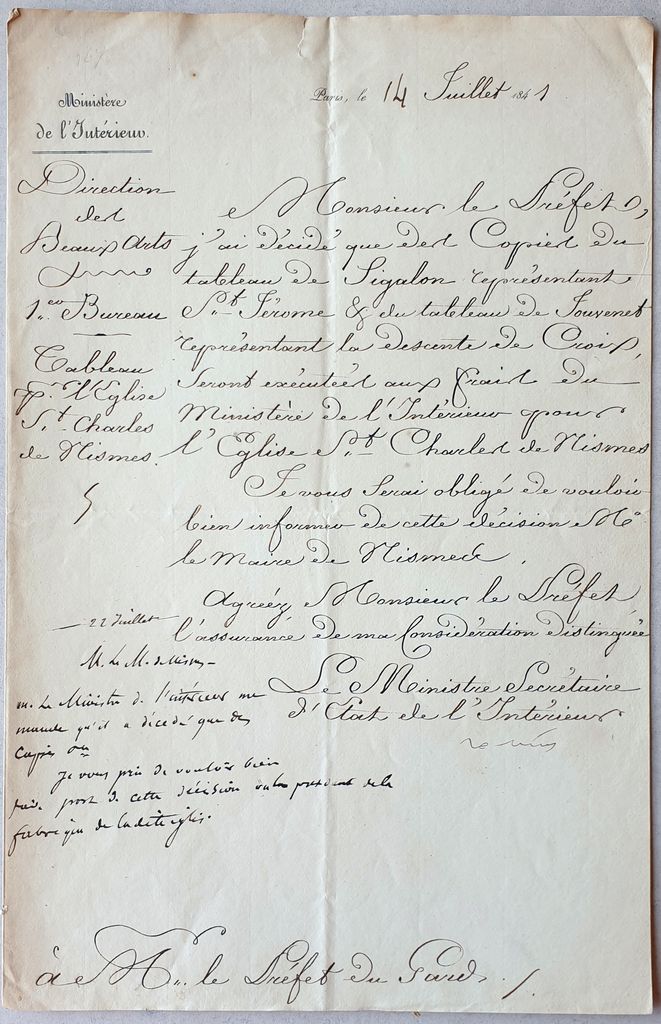 Ministère
de l'Intérieur.
Paris, le 14 Juillet 1841
Direction
des
Beaux Arts
1er Bureau
Tableau
pr. l'Eglise
St. Charles
de Nismes.
Monsieur le Préfet,
j'ai décidé que des Copies du
tableau de Sigalon représentant
St. Jérome & du tableau de Jouvenet
représentant la descente de Croix,
seront exécutées aux frais du
Ministère de l'Intérieur pour
l'Eglise St. Charles de Nismes
Je vous serai obligé de vouloir
bien informer de cette décision Mr
le Maire de Nismes.
Agréez, Monsieur le Préfet
l'assurance de ma Considération distinguée
Le Ministre Secrétaire
d'Etat de l'Intérieur
22 Juillet
M. Le M. de Nismes
M. Le Ministre de l'intérieur me
mande qu'il a décidé que des
Copies
Je vous prie de vouloir bien
faire part de cette décision au président de la
fabrique de ladite église.
à Mr. le Préfet du Gard.